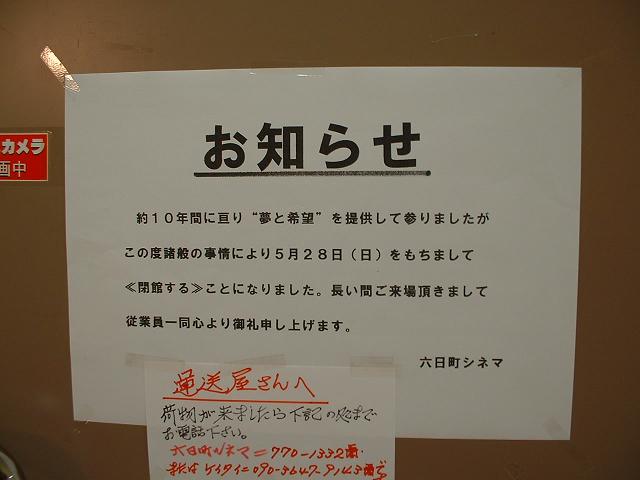 カメラ
画中
お知らせ
約１０年間に亘り“夢と希望”を提供して参りましたが
この度諸般の事情により５月２８日（日）をもちまして
≪閉館する≫ことになりました。長い間ご来場頂きまして
従業員一同心より御礼申し上げます。
六日町シネマ
運送屋さんへ
荷物が来ましたら下記の処まで
お電話下さい。
六日町シネマ＝770-1332番
またはケイタイ＝090-3647-9143番